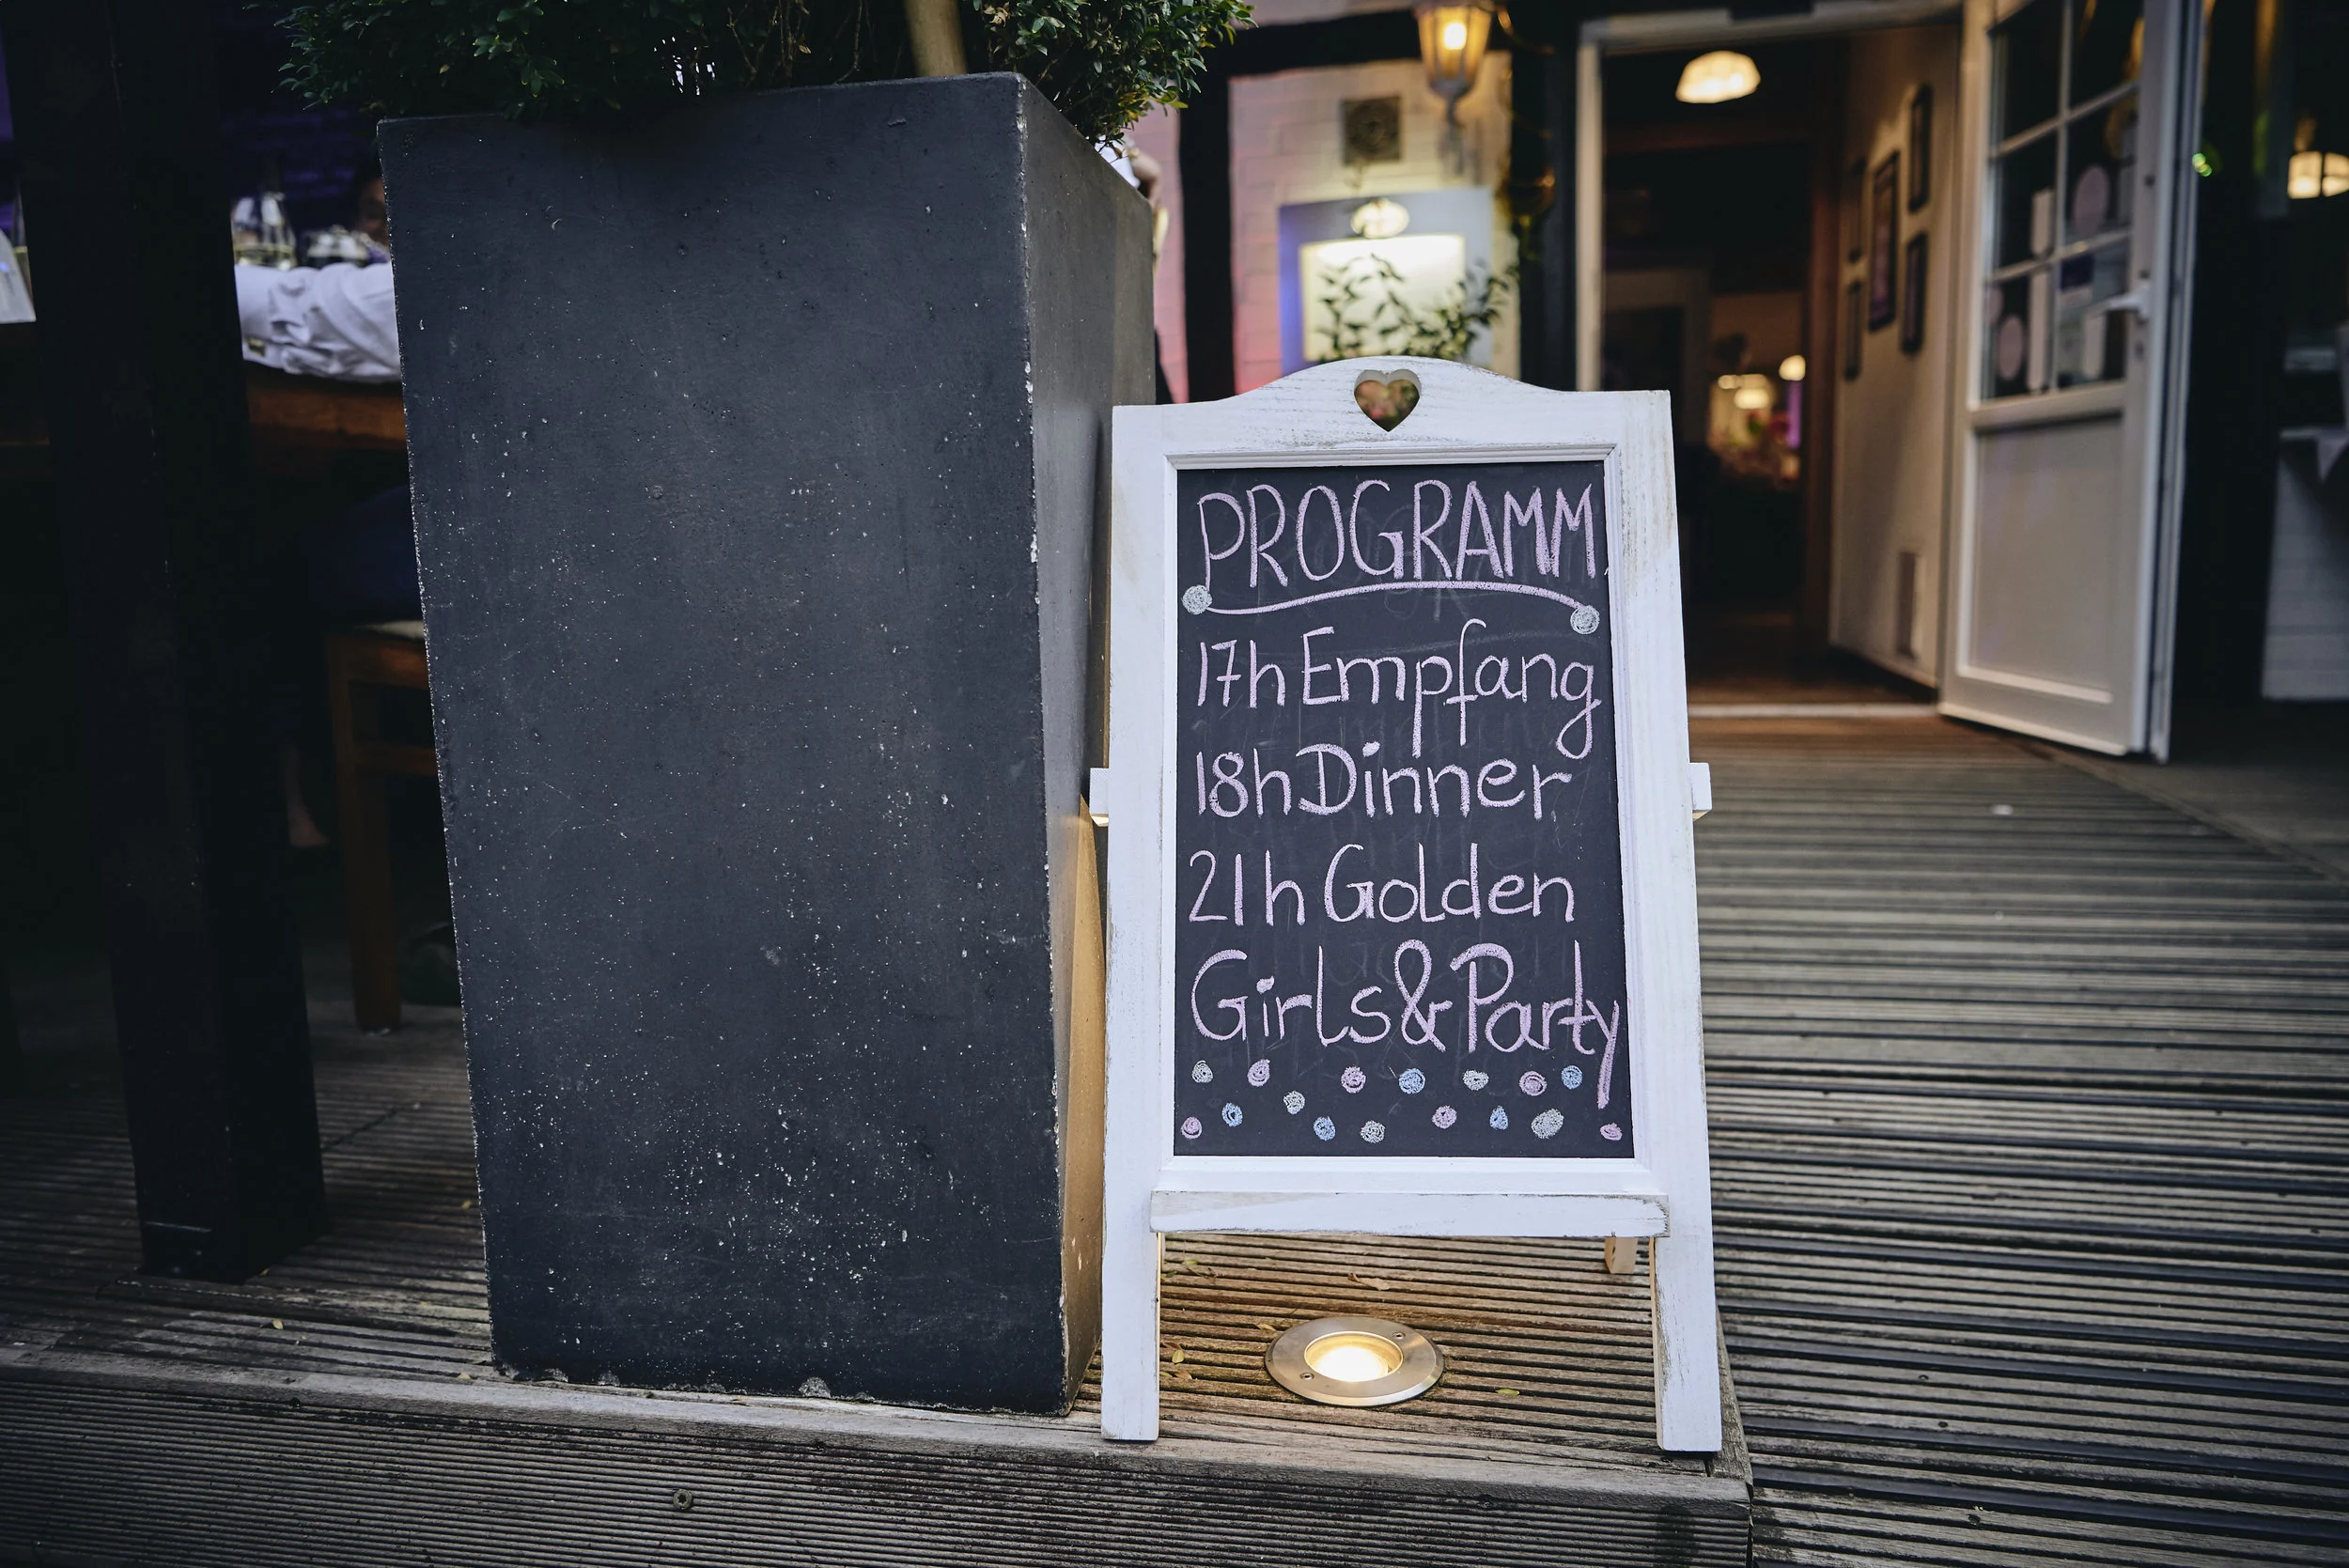 PROGRAMM
17h Empfang
18h Dinner
21h Golden
Girls & Party